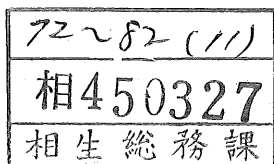 72~82(11)
相450327
相生総務課